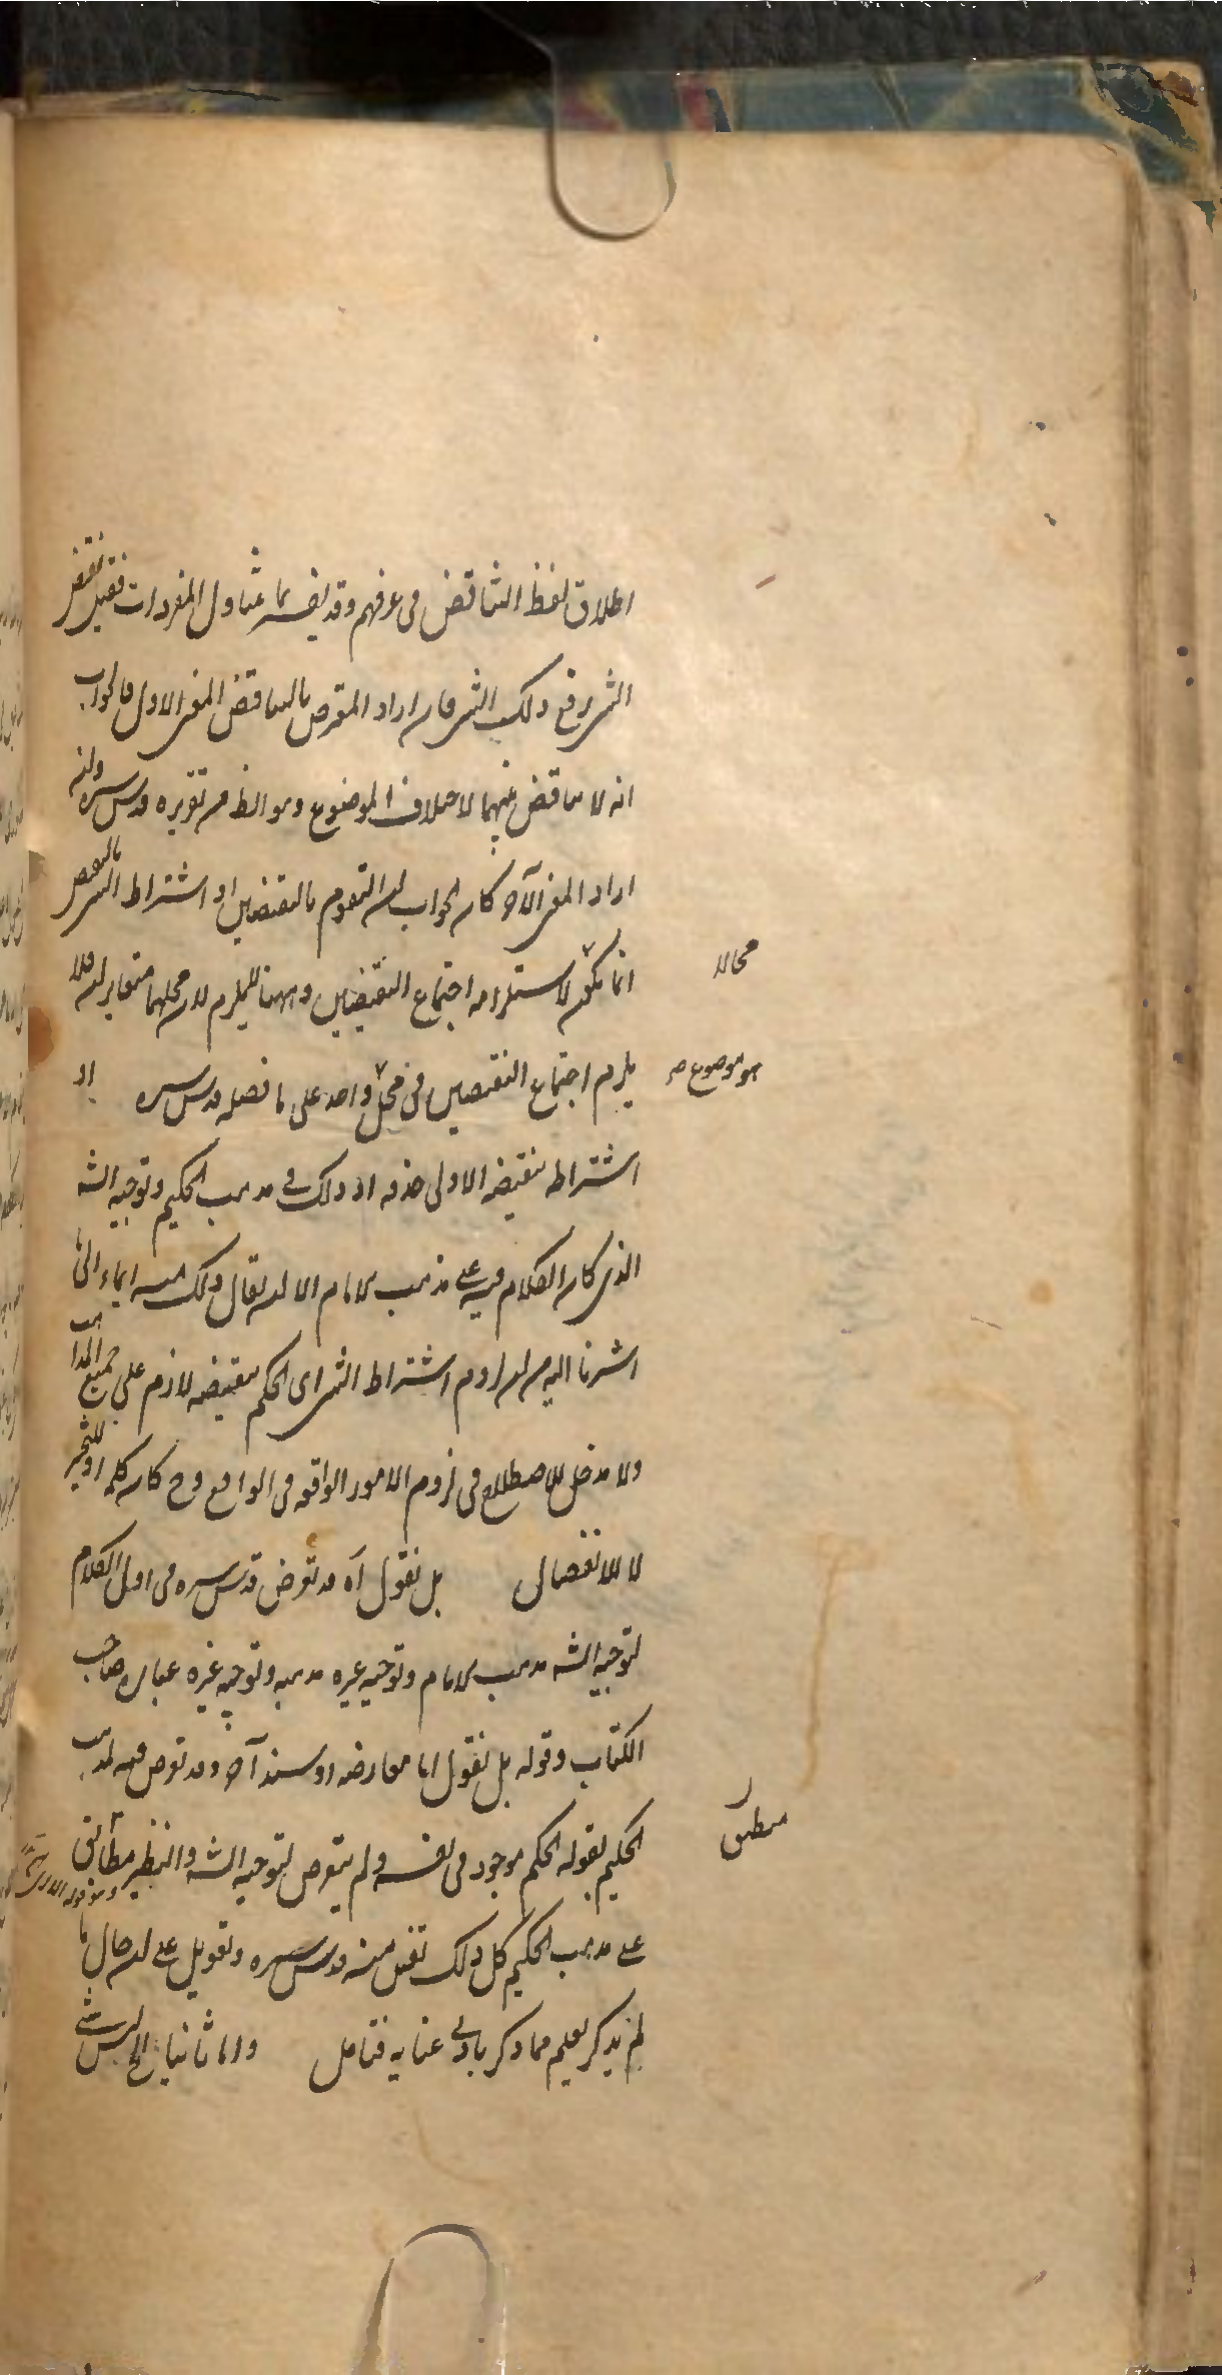 اطلاق لفظ التناقض فى عرفهم وقد يفسر بما يتناول المفردات فقيل نقيض
الشى رفع ذلك الشى فان اراد المعترض بالتناقض المعنى الاول فالجواب
انه لا تناقض بينهما لاختلاف الموضوع وهو الظ من تقريره قدس سره وان
اراد المعنى الآخر كان الجواب ان التقوم بالنقيضين او اشتراط الشى بالنقيض
انما يكون لاستلزامه اجتماع النقيضين وههنا لا يلزم لان محلهما متغايران فلا
محالا
يلزم اجتماع النقيضين فى محل واحد على ما فصله قدس سره اد
هو موضوع
اشتراطه بنقيضه الاولى حذفه اذ ذلك فى مذهب الحكيم وتوجيه الشه
الذى كان الكلام فيه على مذهب الامام الا ان يقال ذلك منه ايماء الى ما
اشرنا اليه من ان لزوم اشتراط الشى اى الحكم بنقيضه لازم على جميع المذاهب
ولا مدخل للاصطلاح فى لزوم الامور الواقعة فى الواقع وح كان كلمة او للتخيير
لا للانفصال بل نقول آه قد تعرض قدس سره فى اول الكلام
لتوجيه الشه مذهب الامام وتوجيه غيره مذهبه وتوجيه غيره عبارة صاحب
الكتاب وقوله بل نقول اما معارضة او سند آخر وقد تعرض فيه لمذهب
الحكيم بقوله الحكم موجود فى نفسه ولم يتعرض لتوجيه الشه والنظير مطابق
على مذهب الحكيم كل ذلك تفنن منه قدس سره وتعويل على ان حال ما
لم يذكر يعلم مما ذكر بادنى عناية فتامل واما ثانيا الخ ليس شى